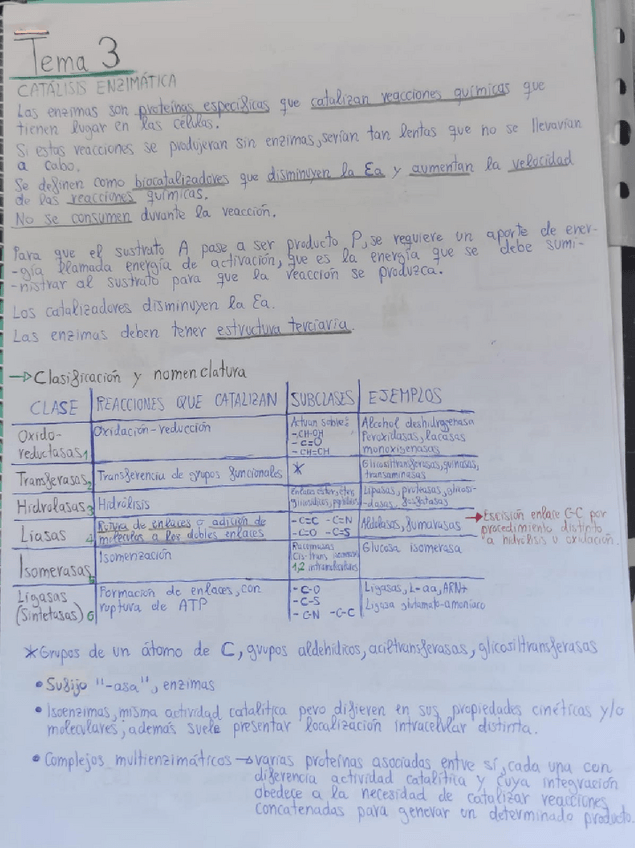 Tema 3
CATÁLISIS ENZIMÁTICA
Las enzimas son proteínas específicas que catalizan reacciones químicas que
tienen lugar en las células.
Si estas reacciones se produjeran sin enzimas, serían tan lentas que no se llevarían
a cabo.
Se definen como biocatalizadores que disminuyen la Ea y aumentan la velocidad
de las reacciones químicas.
No se consumen durante la reacción.
Para que el sustrato A pase a ser producto, P, se requiere un aporte de ener-
-gía llamada energía de activación, que es la energía que se debe sumi-
-nistrar al sustrato para que la reacción se produzca.
Los catalizadores disminuyen la Ea.
Las enzimas deben tener estructura terciaria.
→ Clasificación y nomenclatura
CLASE REACCIONES QUE CATALIZAN SUBCLASES EJEMPLOS
Oxido-reductasas 1 Oxidación-reducción Actúan sobre: -CH-OH -C=O -CH=CH Alcohol deshidrogenasa Peroxidasas, lacasas monoxigenasas
Transferasas 2 Transferencia de grupos funcionales * Glicosiltransferasas, quinasas, transaminasas
Hidrolasas 3 Hidrólisis Enlaces éster, éter, Lipasas, proteasas, glicosi-dasas, fosfatasas
Liasas 4 Rotura de enlaces o adición de moléculas a los dobles enlaces -C=C -C=N -C=O -C-S Aldolasas, fumarasas → Escisión enlace C-C por procedimiento distinto a hidrólisis u oxidación.
Isomerasas 5 Isomerización Racemasas Cis-trans isomeras 1,2 intramoleculares Glucosa isomerasa
Ligasas (Sintetasas) 6 Formación de enlaces, con ruptura de ATP -C-O -C-S -C-N -C-C Ligasas, L-aa, ARNt Ligasa glutamato-amoníaco
* Grupos de un átomo de C, grupos aldehídicos, aciltransferasas, glicosiltransferasas
• Sufijo "-asa", enzimas
• Isoenzimas, misma actividad catalítica pero difieren en sus propiedades cinéticas y/o
moleculares, además suele presentar localización intracelular distinta.
• Complejos multienzimáticos → varias proteínas asociadas entre sí, cada una con
diferencia actividad catalítica y cuya integración
obedece a la necesidad de catalizar reacciones
concatenadas para generar un determinado producto.